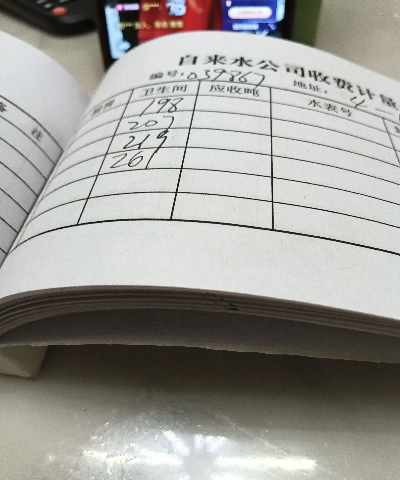 自来水公司收费计量
编号: 039867 地址:
卫生间 应收吨 水表号
198
207
219
267
备 注